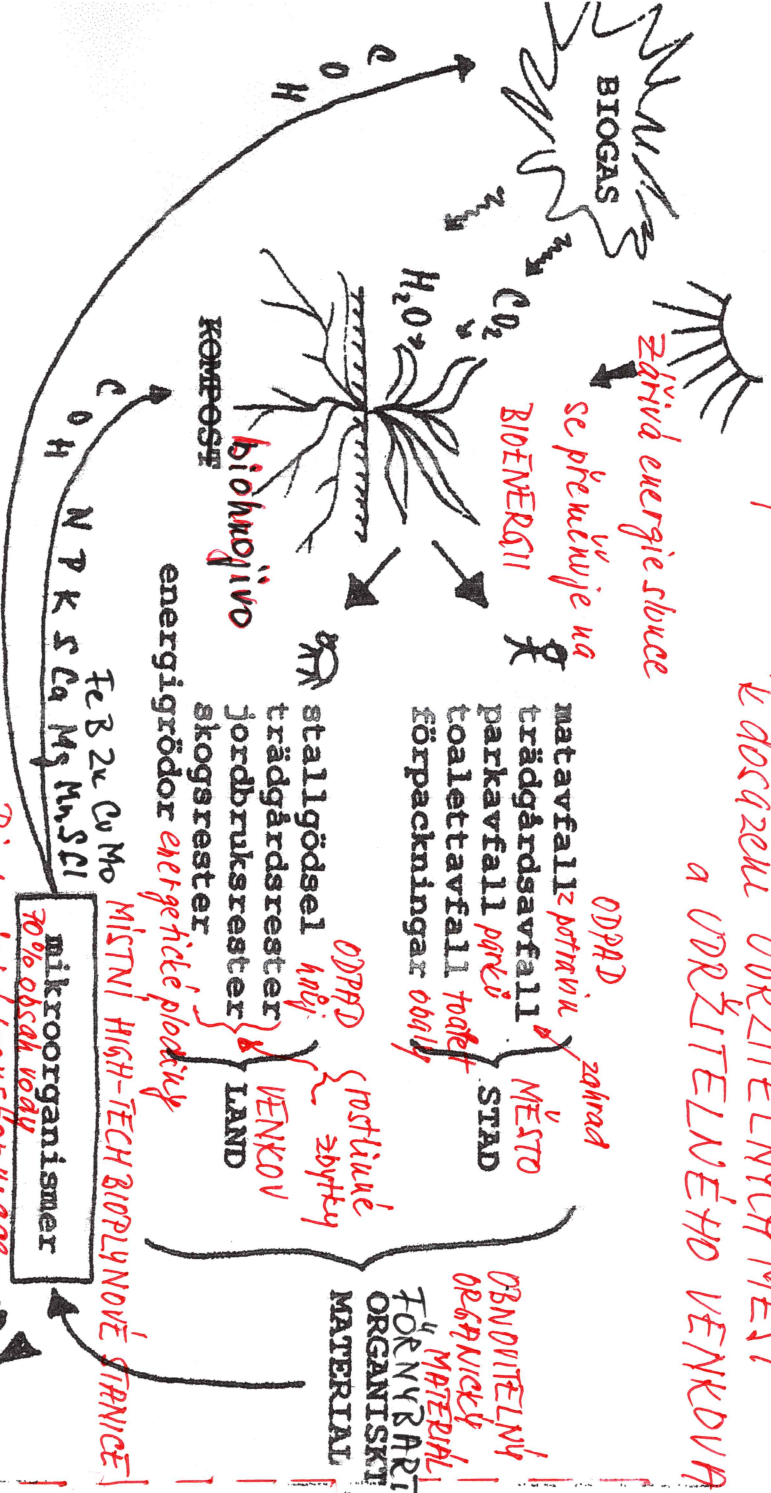 k dosažení UDRŽITELNÝCH MĚST
a UDRŽITELNÉHO VENKOVA
zářivá energie slunce
se přeměňuje na
BIOENERGII
BIOGAS
CO₂
H₂O
KOMPOST
biohnojivo
C O H
C O H N P K S Ca Mg Mn S Cl
Fe B Zn Cu Mo
ODPAD
matavfall z potravin
trädgårdsavfall zahrad
parkavfall parků
toalettavfall toalet
förpackningar obaly
STAD
MĚSTO
ODPAD
stallgödsel hnůj
trädgårdsrester
jordbruksrester
skogsrester
energigrödor energetické plodiny
rostlinné
zbytky
VENKOV
LAND
OBNOVITELNÝ
ORGANICKÝ
MATERIÁL
FÖRNYBART
ORGANISKT
MATERIAL
MÍSTNÍ HIGH-TECH BIOPLYNOVÉ STANICE
mikroorganismer
70% obsah vody